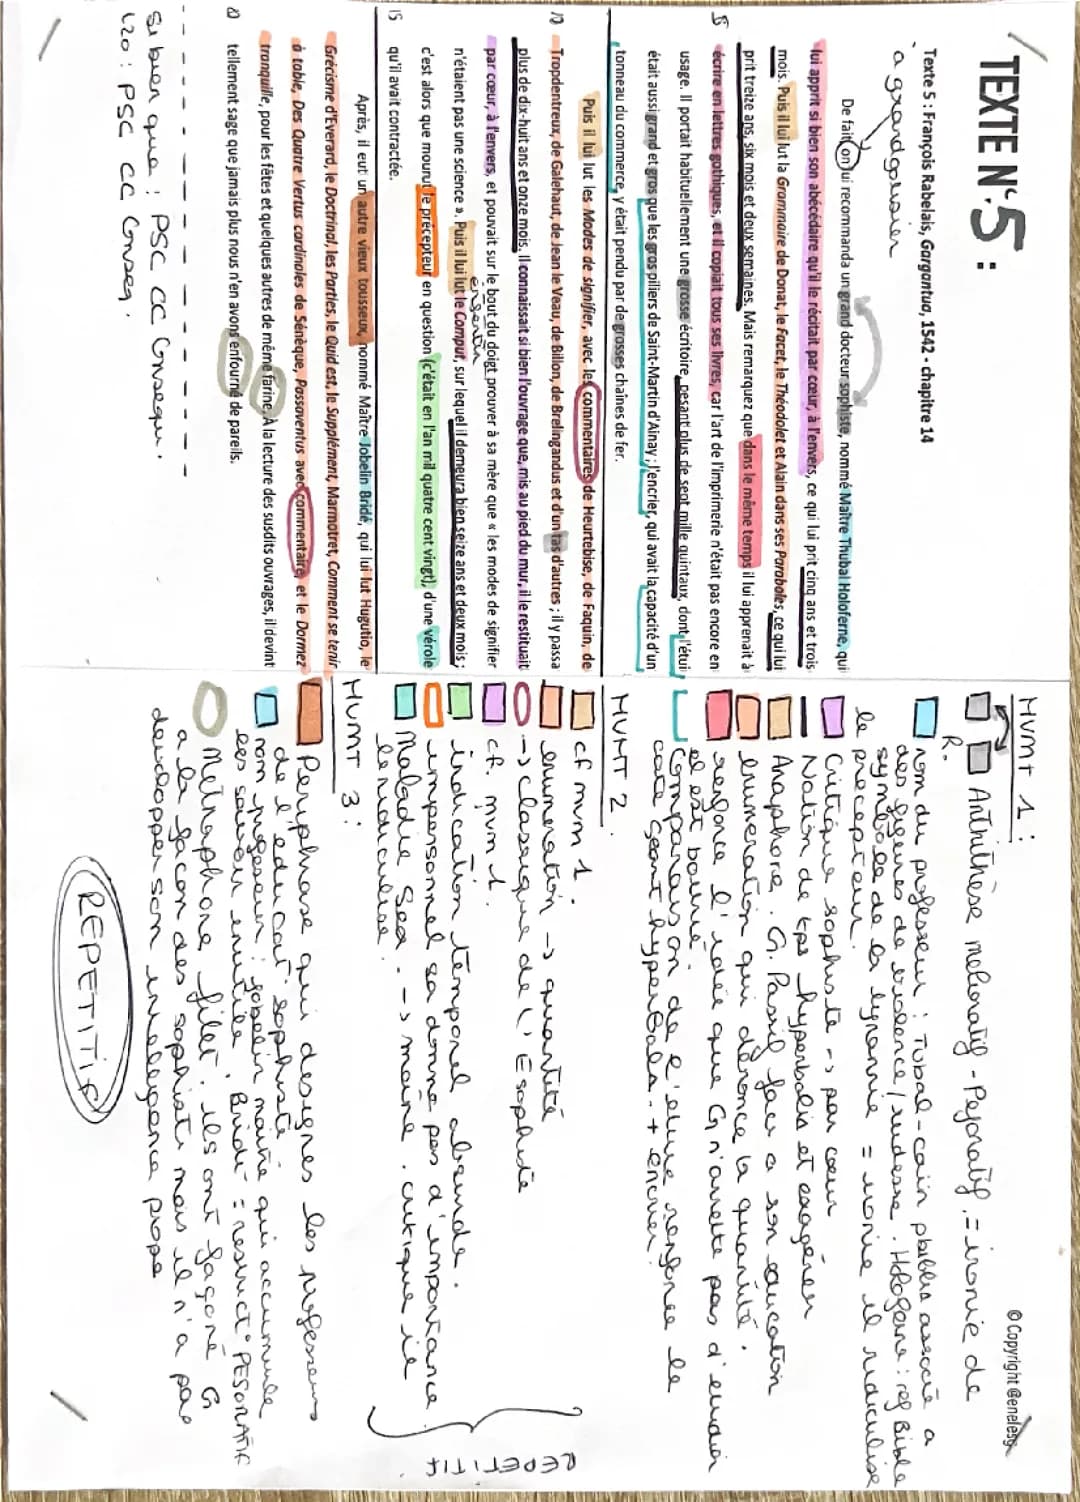 TEXTE N°5 :
Texte 5 : François Rabelais, Gargantua, 1542 - chapitre 14
a grandgousier
De fait, on lui recommanda un grand docteur sophiste, nommé Maître Thubal Holoferne, qui
lui apprit si bien son abécédaire qu'il le récitait par cœur, à l'envers, ce qui lui prit cinq ans et trois
mois. Puis il lui lut la Grammaire de Donat, le Facet, le Théodolet et Alain dans ses Paraboles, ce qui lui
prit treize ans, six mois et deux semaines. Mais remarquez que dans le même temps il lui apprenait à
5 écrire en lettres gothiques, et il copiait tous ses livres, car l'art de l'imprimerie n'était pas encore en
usage. Il portait habituellement une grosse écritoire, pesant plus de sept mille quintaux, dont l'étui
était aussi grand et gros que les gros piliers de Saint-Martin d'Ainay ; l'encrier, qui avait la capacité d'un
tonneau du commerce, y était pendu par de grosses chaînes de fer.
Puis il lui lut les Modes de signifier, avec les commentaires de Heurtebise, de Faquin, de
10 Tropdentreux, de Galehaut, de Jean le Veau, de Billon, de Brelingandus et d'un tas d'autres ; il y passa
plus de dix-huit ans et onze mois. Il connaissait si bien l'ouvrage que, mis au pied du mur, il le restituait
par cœur, à l'envers, et pouvait sur le bout du doigt prouver à sa mère que « les modes de signifier
n'étaient pas une science ». Puis il lui lut le Comput, sur lequel il demeura bien seize ans et deux mois ;
c'est alors que mourut le précepteur en question (c'était en l'an mil quatre cent vingt), d'une vérole
15 qu'il avait contractée.
Après, il eut un autre vieux tousseux, nommé Maître Jobelin Bridé, qui lui lut Hugutio, le
Grécisme d'Everard, le Doctrinal, les Parties, le Quid est, le Supplément, Marmotret, Comment se tenir
à table, Des Quatre Vertus cardinales de Sénèque, Passaventus avec commentaire, et le Dormez
tranquille, pour les fêtes et quelques autres de même farine. À la lecture des susdits ouvrages, il devint
20 tellement sage que jamais plus nous n'en avons enfourné de pareils.
si bien que : PSC CC Conséqu.
L20 : PSC CC Conseq.
© Copyright @enelesg
Mvmt 1 :
Antithèse mélioratif - Pejoratif = ironie de
R.
nom du professeur : Tubal-cain associé a
des figures de violence / rudesse. Holopherne : ref Bible
symbole de la tyrannie = ironie il ridiculise
le précepteur.
Critique sophiste -> par cœur
Notion de tps hyperbolis et exagérer
Anaphore. G. Passif face a son education
enumeration qui dénonce la quantité.
renforce l'idée que G n'arrete pas d'etudier
el est borné.
Comparaison de l'etui renforce le
coté geant hyperbole. + encrier.
MVMT 2.
cf mvm 1.
enumeration -> quantité
-> classique de l'E sophiste
cf. mvm 1.
indication temporel absurde.
impersonnel sa donne pas d'importance.
Maladie Sex. -> moine. critique ie
le ridiculise.
REPETITIF
MVMT 3 :
Periphrase qui designes les professeurs
de l'educat° sophiste
nom professeur : jobelin maitre qui accumule
les savoir inutile. Bridé = restrict° PEJORATIF
Methaphore filet. ils ont façoné G
a la façon des sophiste mais il n'a pas
developper son inteligence propre
REPETITIF